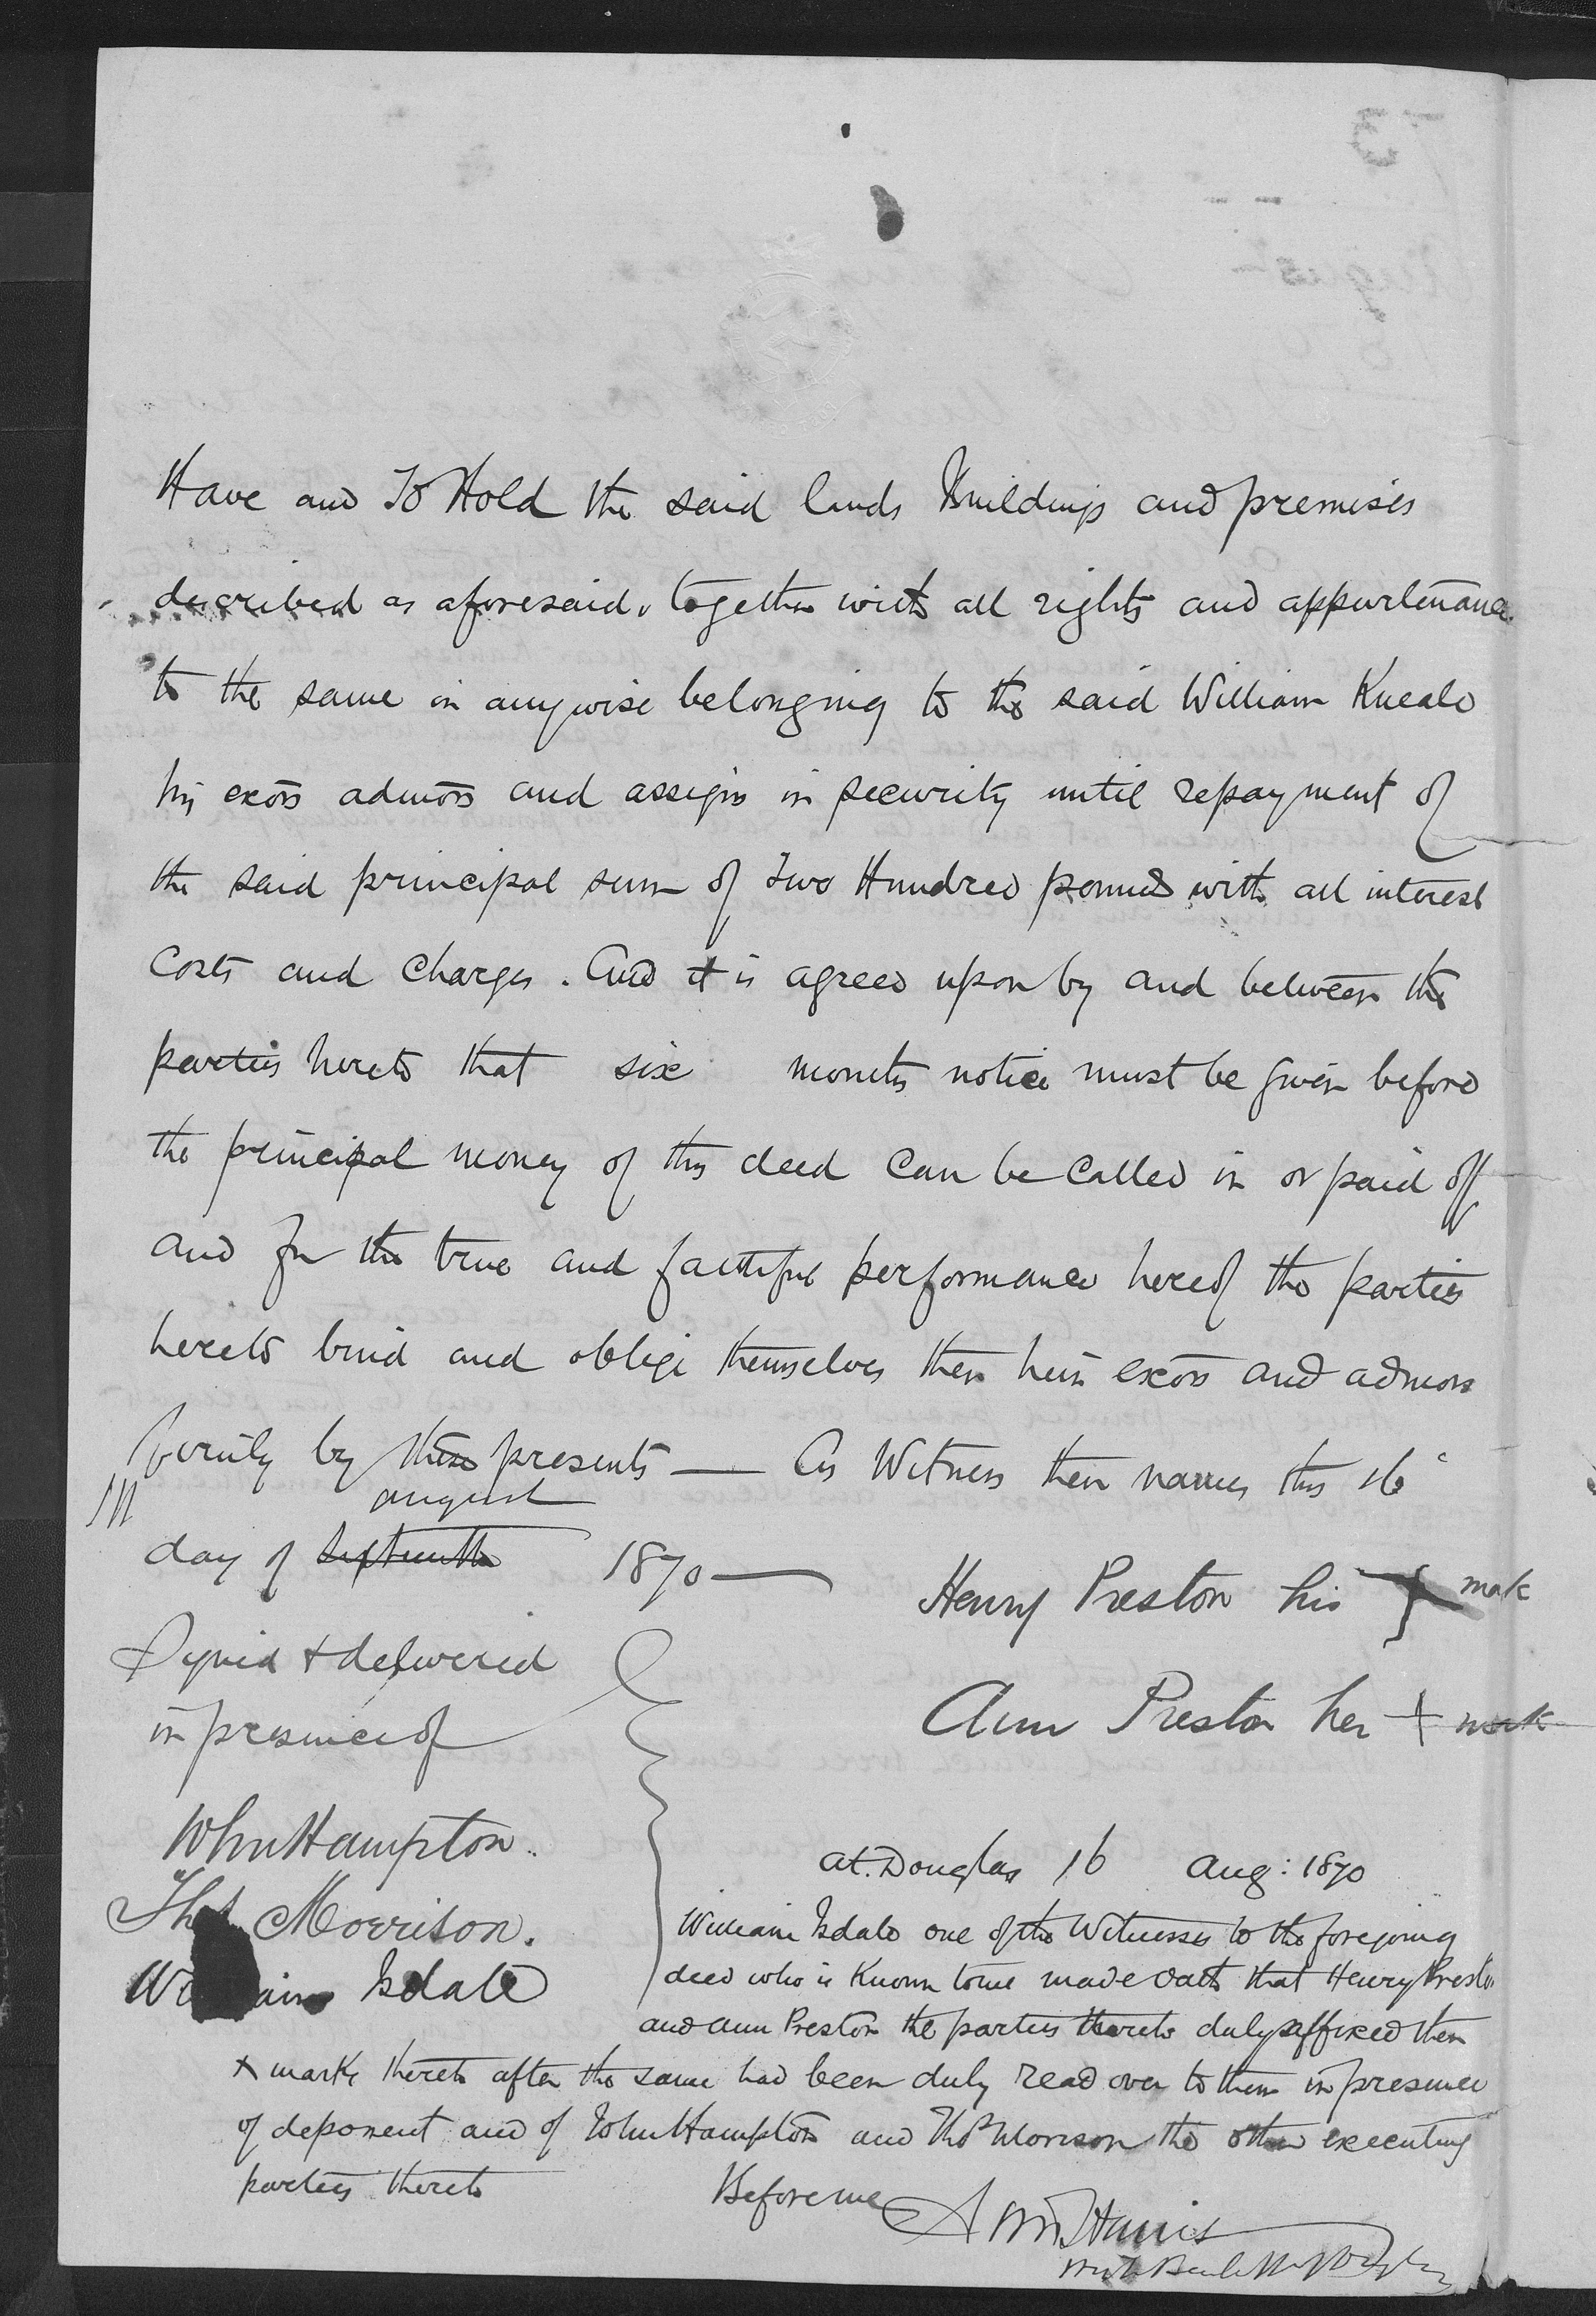 Have and To Hold the said lands Buildings and premises
described as aforesaid, together with all rights and appurtenances
to the same in anywise belonging to the said William Kneale
his exors admors and assigns in security until repayment of
the said principal sum of Two Hundred pounds with all interest
Costs and Charges. And it is agreed upon by and between the
parties hereto that six months notice must be given before
the principal money of this deed can be called in or paid off
and for the true and faithful performance hereof the parties
hereto bind and oblige themselves their heirs exors and admors
firmly by these presents — As Witness their names this 16
august
day of 1870 —
Henry Preston his mark
Signed & delivered
in presence of
Ann Preston her + mark
John Hampton.
Thos Morrison.
William Isdale
at Douglas 16 Aug: 1870
William Isdale one of the Witnesses to the foregoing
deed who is Known to me made oath that Henry Preston
and Ann Preston the parties thereto duly affixed their
x marks thereto after the same had been duly read over to them in presence
of deponent and of John Hampton and Thos Morrison the other executing
parties thereto
Before me
Harris